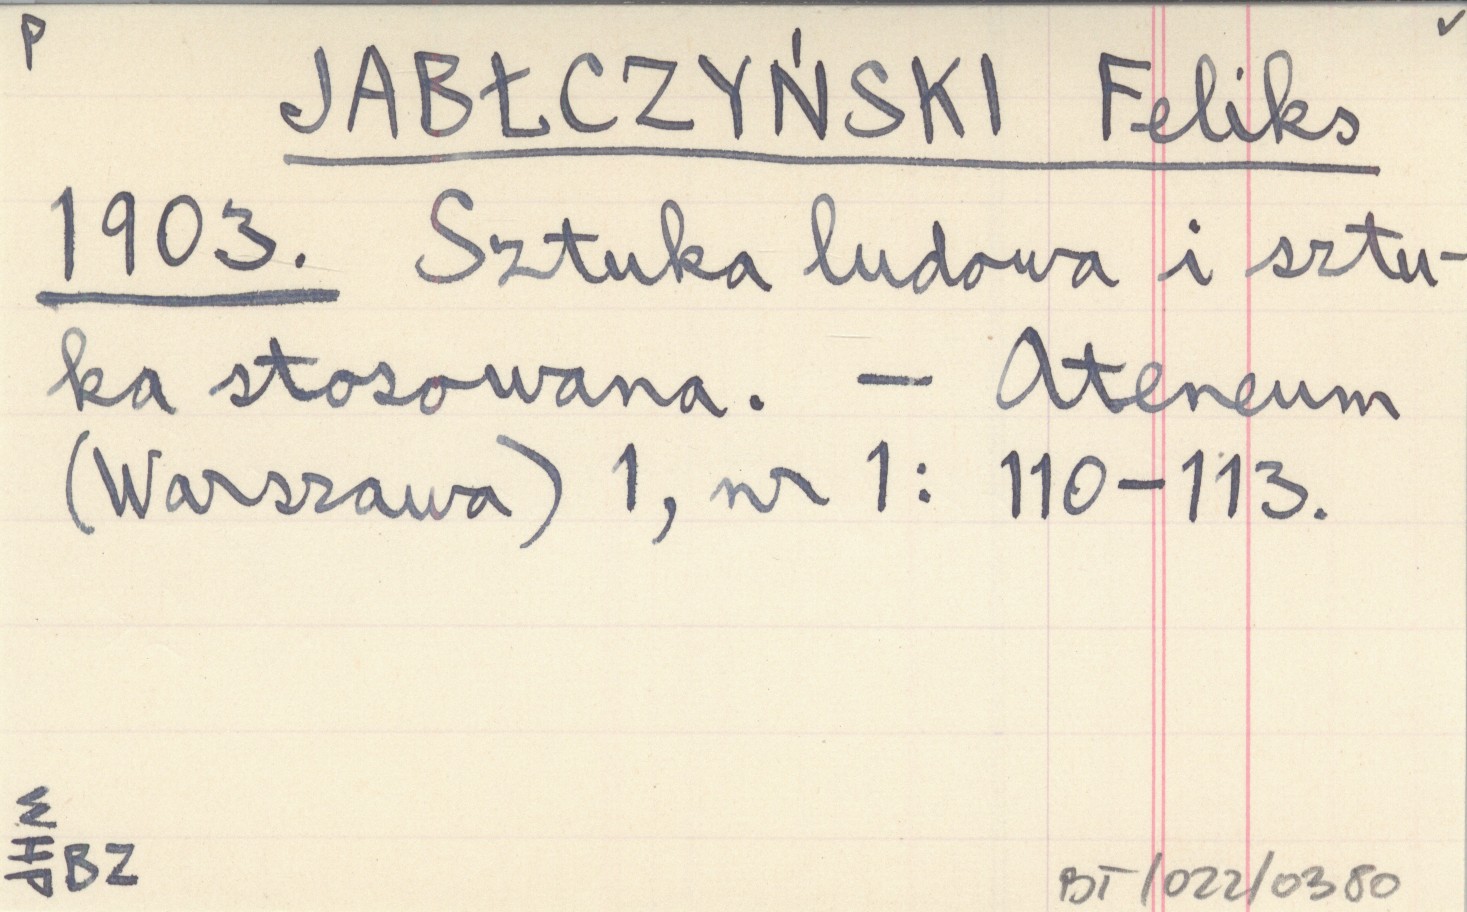 P
JABŁCZYŃSKI Feliks
1903. Sztuka ludowa i sztu-
ka stosowana. — Ateneum
(Warszawa) 1, nr 1: 110-113.
BZ
BT/022/0380